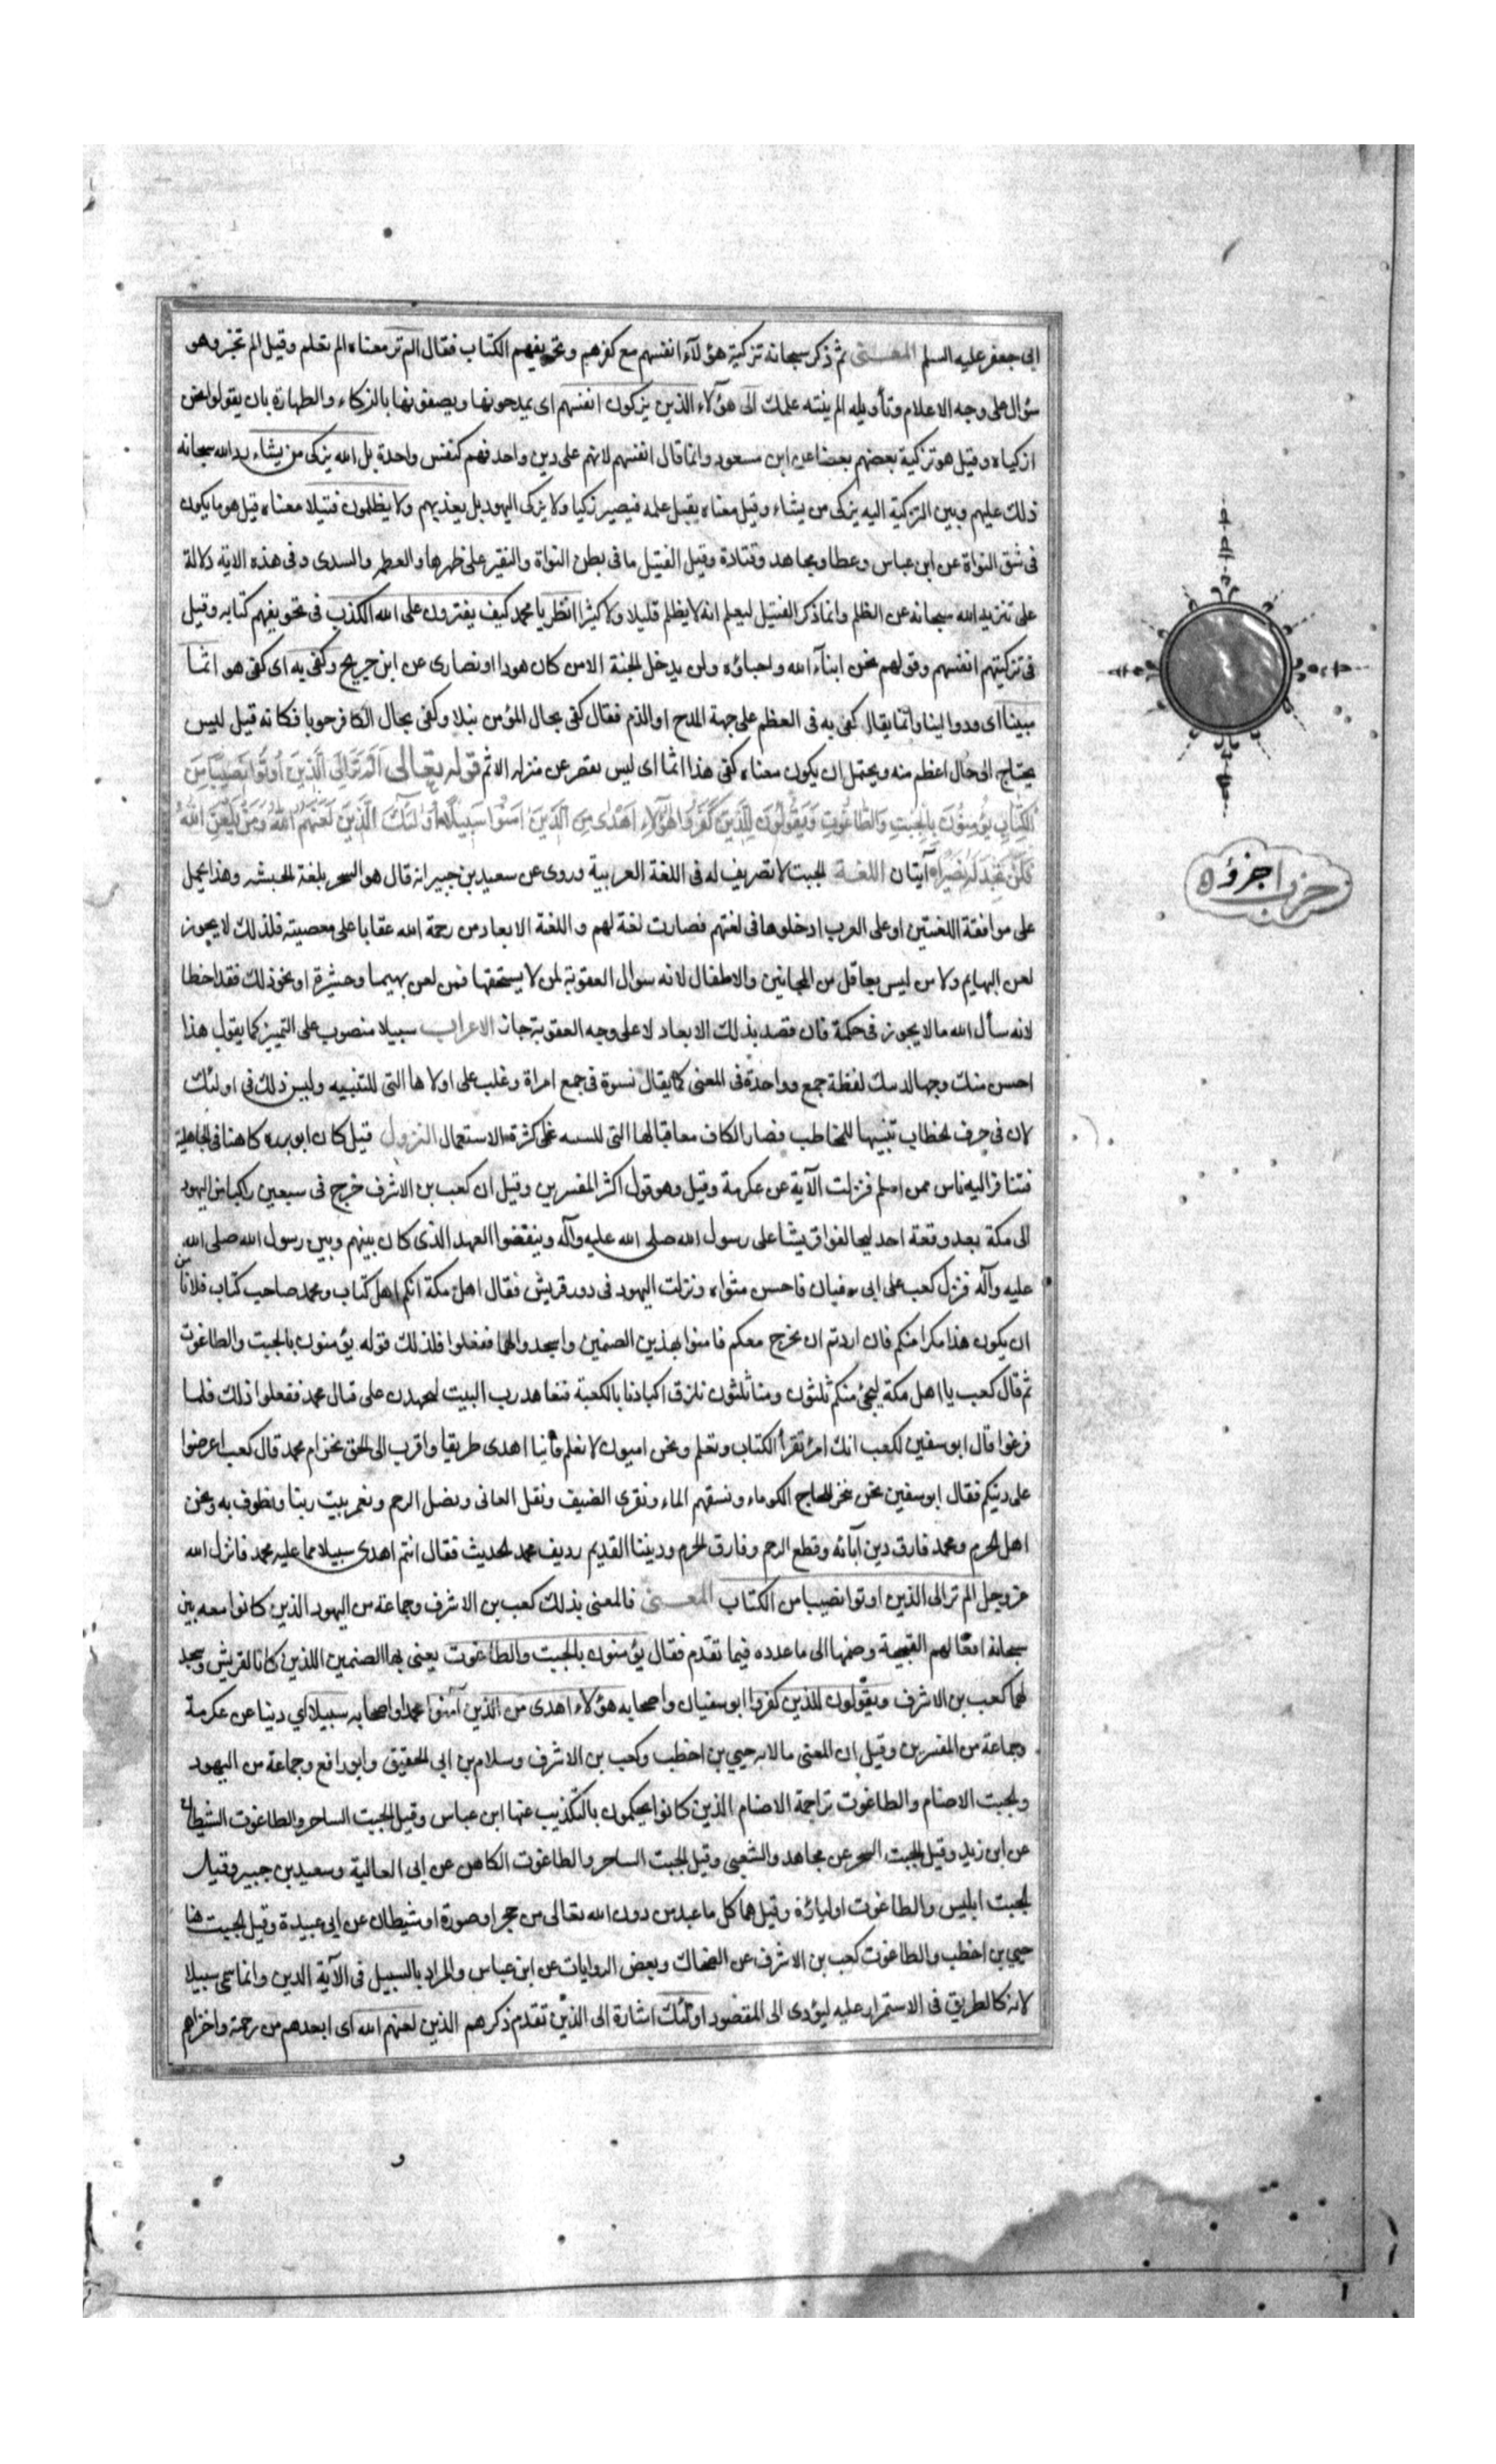 ابى جعفر عليه السلم المعنى ثم ذكر سبحانه تزكية هؤلاء انفسهم مع كفرهم وتحريفهم الكتاب فقال الم تر معناه الم تعلم وقيل الم تخبر وهو
سؤال على وجه الاعلام وتأويله الم ينته علمك الى هؤلاء الذين يزكون انفسهم اى يمدحونها ويصفونها بالزكاء والطهارة بان يقولوا نحن
ازكياء وقيل هو تزكية بعضهم بعضا عن ابن مسعود وانما قال انفسهم لانهم على دين واحد فهم كنفس واحدة بل الله يزكى من يشاء رد الله سبحانه
ذلك عليهم وبين التزكية اليه يزكى من يشاء وقيل معناه يقبل عمله فيصير زكيا ولا يزكى اليهود بل يعذبهم ولا يظلمون فتيلا معناه قيل هو ما يكون
فى شق النواة عن ابن عباس وعطا ومجاهد وقتادة وقيل الفتيل ما فى بطن النواة والنقير على ظهرها والسدى وفى هذه الاية دلالة
على تنزيه الله سبحانه عن الظلم وانما ذكر الفتيل ليعلم انه لا يظلم قليلا ولا كثيرا انظر يا محمد كيف يفترون على الله الكذب فى تحويفهم كتابه وقيل
فى تزكيتهم انفسهم وقولهم نحن ابنآء الله واحباؤه ولن يدخل الجنة الا من كان هودا او نصارى عن ابن جريج وكفى به اى كفى هو اثما
مبينا اى وانما يقال كفى به فى العظم على جهة المدح او الذم فقال كفى بحال المؤمن نبلا وكفى بحال الكافر حوبا فكانه قيل ليس
يحتاج الى حال اعظم منه ويحتمل ان يكون معناه كفى هذا اثما اى ليس يقصر عن منزله الاثم قوله تعالى الم تر الى الذين اوتوا نصيبا من
الكتاب يؤمنون بالجبت والطاغوت ويقولون للذين كفروا هؤلاء اهدى من الذين امنوا سبيلا اولئك الذين لعنهم الله ومن يلعن الله
فلن تجد له نصيرا آيتان اللغة الجبت لا تصريف له فى اللغة العربية وروى عن سعيد بن جبير انه قال هو السحر بلغة الحبشه وهذا يحمل
على موافقة اللغتين او على العرب ادخلوها فى لغتهم فصارت لغة لهم و اللغة الابعاد من رحمة الله عقابا على معصيته فلذلك لا يجوز
لعن البهايم ولا من ليس بعاقل من المجانين والاطفال لانه سوال العقوبة لمن لا يستحقها فمن لعن بهيما وحشيرة او نحو ذلك فقد اخطا
لانه سأل الله ما لا يجوز فى حكمة فان قصد بذلك الابعاد لا على وجه العقوبة جاز الاعراب سبيلا منصوب على التميز كما يقول هذا
احسن منك وجها لفظة جمع وواحدة فى المعنى كما يقال نسوة فى جمع امراة وغلب على اولا ها التى للتنبيه وليس ذلك فى اولئك
لان فى حرف لخطاب تنبيها للمخاطب فصار الكاف معاقبا لها التى على كثرة الاستعمال النزول قيل كان ابو برده كاهنا فى الجاهلية
فتنافر اليه ناس ممن اسلم فنزلت الآية عن عكرمة وقيل وهو قول اكثر المفسرين وقيل ان كعب بن الاشرف خرج فى سبعين راكبا من اليهود
الى مكة بعد وقعة احد ليحالفوا قريشا على رسول الله صلى الله عليه وآله وينقضوا العهد الذى كان بينهم وبين رسول الله صلى الله
عليه وآله فنزل كعب على ابى سفيان فاحسن مثواه ونزلت اليهود فى دور قريش فقال اهل مكة انكم اهل كتاب ومحمد صاحب كتاب فلا نامن
ان يكون هذا مكرا منكم فان اردتم ان نخرج معكم فامنوا بهذين الصنمين واسجدوا لهما ففعلوا فلذلك قوله يؤمنون بالجبت والطاغوت
ثم قال كعب يا اهل مكة ليجئ منكم ثلثون ومنا ثلثون نلزق اكبادنا بالكعبة فنعاهد رب البيت لنجهدن على قتال محمد ففعلوا ذلك فلما
فرغوا قال ابو سفين لكعب انك امرؤ تقرأ الكتاب وتعلم ونحن اميون لا نعلم فأينا اهدى طريقا واقرب الى الحق نحن ام محمد قال كعب اعرضوا
على دينكم فقال ابو سفين نحن ننحر للحاج الكوماء ونسقهم الماء ونقرى الضيف ونفك العانى ونصل الرحم ونعمر بيت ربنا ونطوف به ونحن
اهل الحرم ومحمد فارق دين آبائه وقطع الرحم وفارق الحرم وديننا القديم ردیف محمد الحديث فقال انتم اهدى سبيلا مما عليه محمد فانزل الله
عز وجل الم تر الى الذين اوتوا نصيبا من الكتاب المعنى فالمعنى بذلك كعب بن الاشرف وجماعة من اليهود الذين كانوا معه بين
سبحانه افعالهم القبيحة وضمها الى ما عدده فيما تقدم فقال يؤمنون بالجبت والطاغوت يعنى بهما الصنمين اللذين كانا لقريش وسجد
لهما كعب بن الاشرف ويقولون للذين كفروا ابو سفيان واصحابه هؤلاء اهدى من الذين آمنوا محمد واصحابه سبيلا اي دينا عن عكرمة
وجماعة من المفسرين وقيل ان المعنى بالايه حيي بن اخطب وكعب بن الاشرف وسلام بن ابي الحقيق وابو رافع وجماعة من اليهود
والجبت الاصنام والطاغوت تراجمة الاصنام الذين كانوا يحكمون بالتكذيب عنها ابن عباس وقيل الجبت الساحر والطاغوت الشيطان
عن ابن زيد وقيل الجبت السحر عن مجاهد والشعبى وقيل الجبت الساحر والطاغوت الكاهن عن ابى العالية وسعيد بن جبير وقيل
الجبت ابليس والطاغوت اولياؤه وقيل هما كل ما عبد من دون الله تعالى من حجر او صورة او شيطان عن ابى عبيدة وقيل الجبت هنا
حيي بن اخطب والطاغوت كعب بن الاشرف عن الضحاك وبعض الروايات عن ابن عباس والمراد بالسبيل فى الآية الدين وانما سمى سبيلا
لانه كالطريق فى الاستمرار عليه ليؤدى الى المقصود اولئك اشارة الى الذين تقدم ذكرهم الذين لعنهم الله اى ابعدهم من رحمة واخزاهم